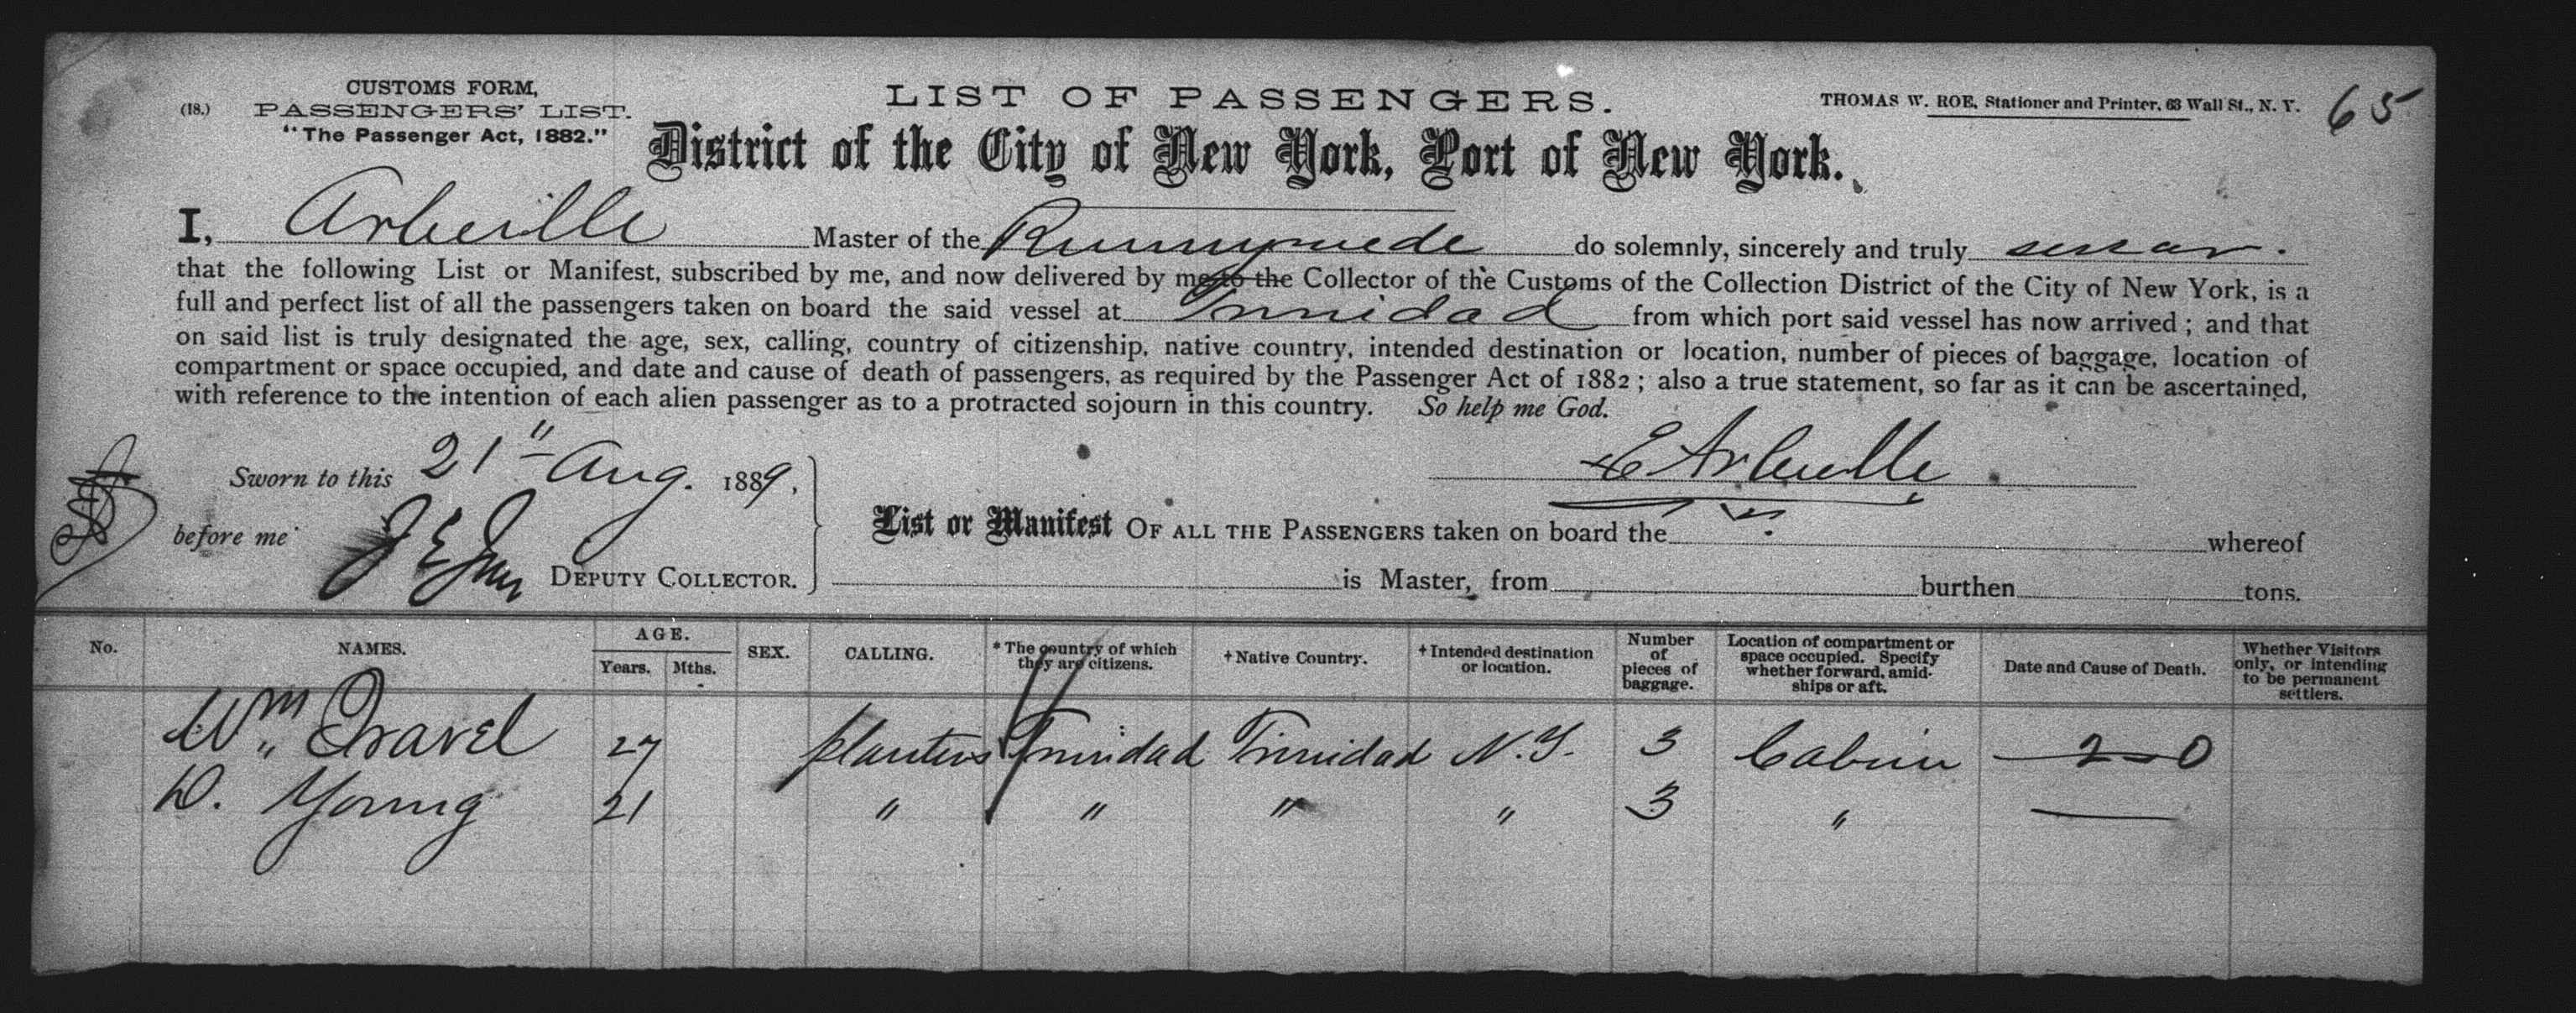 CUSTOMS FORM,
(18.) PASSENGERS' LIST.
"The Passenger Act, 1882."
LIST OF PASSENGERS.
THOMAS W. ROE, Stationer and Printer, 63 Wall St., N. Y.
65
District of the City of New York, Port of New York.
I, Arbeille Master of the Runnymede do solemnly, sincerely and truly swear.
that the following List or Manifest, subscribed by me, and now delivered by me to the Collector of the Customs of the Collection District of the City of New York, is a
full and perfect list of all the passengers taken on board the said vessel at Trinidad from which port said vessel has now arrived; and that
on said list is truly designated the age, sex, calling, country of citizenship, native country, intended destination or location, number of pieces of baggage, location of
compartment or space occupied, and date and cause of death of passengers, as required by the Passenger Act of 1882; also a true statement, so far as it can be ascertained,
with reference to the intention of each alien passenger as to a protracted sojourn in this country. So help me God.
Sworn to this 21" Aug. 1889.
E Arbeille
before me
DEPUTY COLLECTOR.
List or Manifest OF ALL THE PASSENGERS taken on board the whereof
is Master, from burthen tons.
No. NAMES. AGE. Years. Mths. SEX. CALLING. * The country of which they are citizens. + Native Country. + Intended destination or location. Number of pieces of baggage. Location of compartment or space occupied. Specify whether forward, amidships or aft. Date and Cause of Death. Whether Visitors only, or intending to be permanent settlers.
Wm Gravel 27 planters Trinidad Trinidad N.Y. 3 Cabin 2-0
D. Young 21 " " " " 3 "